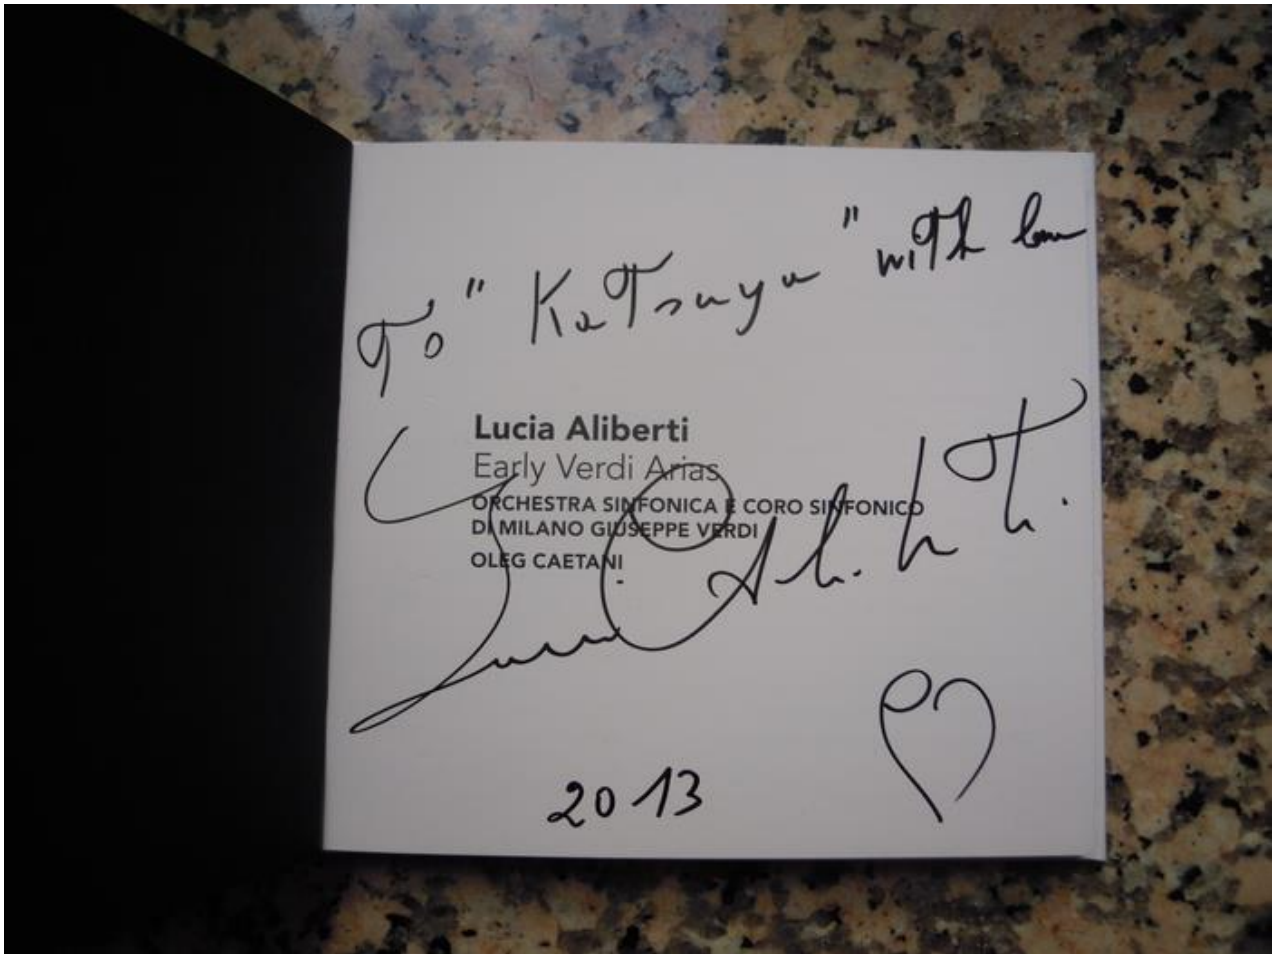 To "Katsuya" with love
Lucia Aliberti
Early Verdi Arias
ORCHESTRA SINFONICA E CORO SINFONICO
DI MILANO GIUSEPPE VERDI
OLEG CAETANI
Lucia Aliberti
2013